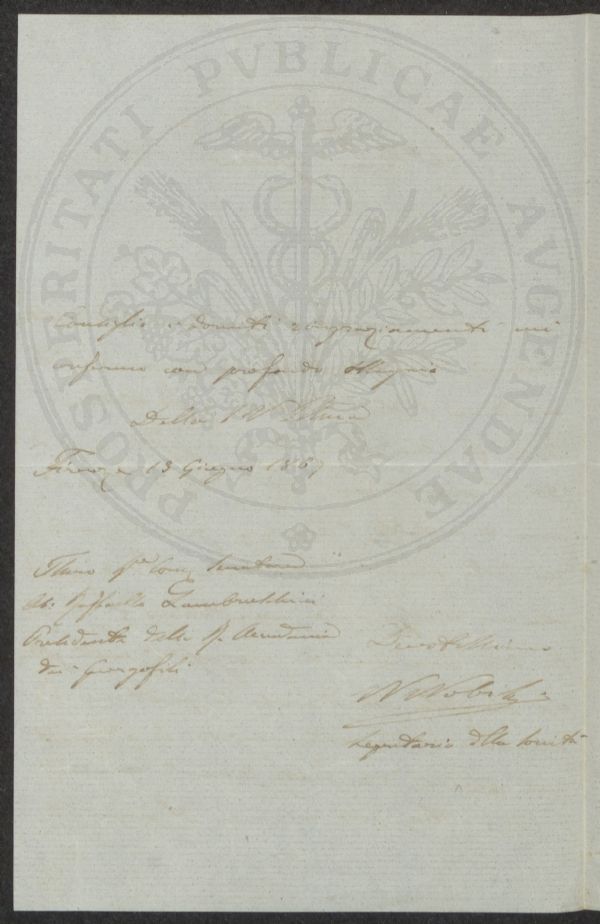 PROSPERITATI PVBLICAE AVGENDAE
Consiglio i dovuti ringraziamenti mi
confermo con profondo ossequio
Della S. V. Illma
Firenze 13 Giugno 1867
Illmo Sr. Comm. Senatore
Ab: Raffaello Lambruschini
Presidente della R. Accademia
dei Georgofili
Devotissimo
N Nobili
Segretario della Società